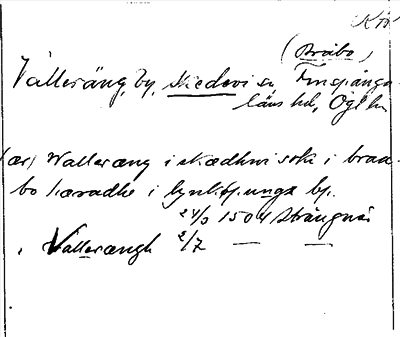 (Bråbo)
Välleräng, by, Skedevi sn, Finspånga
läns hd, Ögl. län
(ær) Walleræng i skædhwi sokn i braa-
bo hæradhe i lynkøpungx bp.
24/3 1504 Strängnäs
Vallerængh 2/7 — —